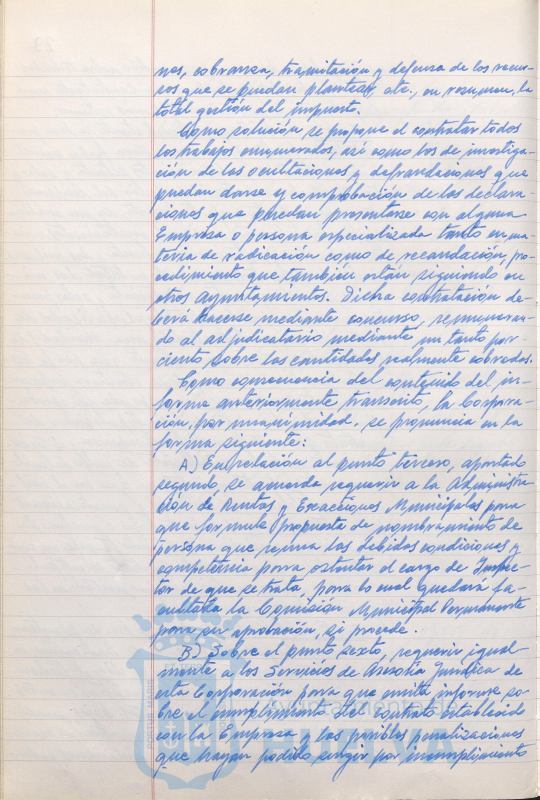 nes, cobranza, tramitación y defensa de los recur-
sos que se puedan plantear, etc., en resumen, la
total gestión del impuesto.
Como solución se propone el contratar todos
los trabajos enumerados, así como los de investiga-
ción de las ocultaciones y defraudaciones que
puedan darse y comprobación de las declara-
ciones que puedan presentarse con alguna
Empresa o persona especializada tanto en ma-
teria de radicación como de recaudación, pro-
cedimiento que también están siguiendo en
otros ayuntamientos. Dicha contratación de-
berá hacerse mediante concurso, remuneran-
do al adjudicatario mediante un tanto por
ciento sobre las cantidades realmente cobradas.
Como consecuencia del contenido del in-
forme anteriormente transcrito, la Corpora-
ción, por unanimidad, se pronuncia en la
forma siguiente:
A) En relación al punto tercero, apartado
segundo, se acuerda requerir a la Administra
ción de Rentas y Exacciones Municipales para
que formule propuesta de nombramiento de
persona que reuna las debidas condiciones y
competencia para ostentar el cargo de Inspec-
tor de que se trata, para lo cual quedará fa-
cultada la Comisión Municipal Permanente
para su aprobación, si procede.
B) Sobre el punto sexto, requerir igual-
mente a los Servicios de Asesoría Jurídica de
esta Corporación para que emita informe so-
bre el cumplimiento del contrato establecido
con la Empresa y las posibles penalizaciones
que hayan podido surgir por incumplimiento
PORTUS MARIS
Ayuntamiento de
HUELVA